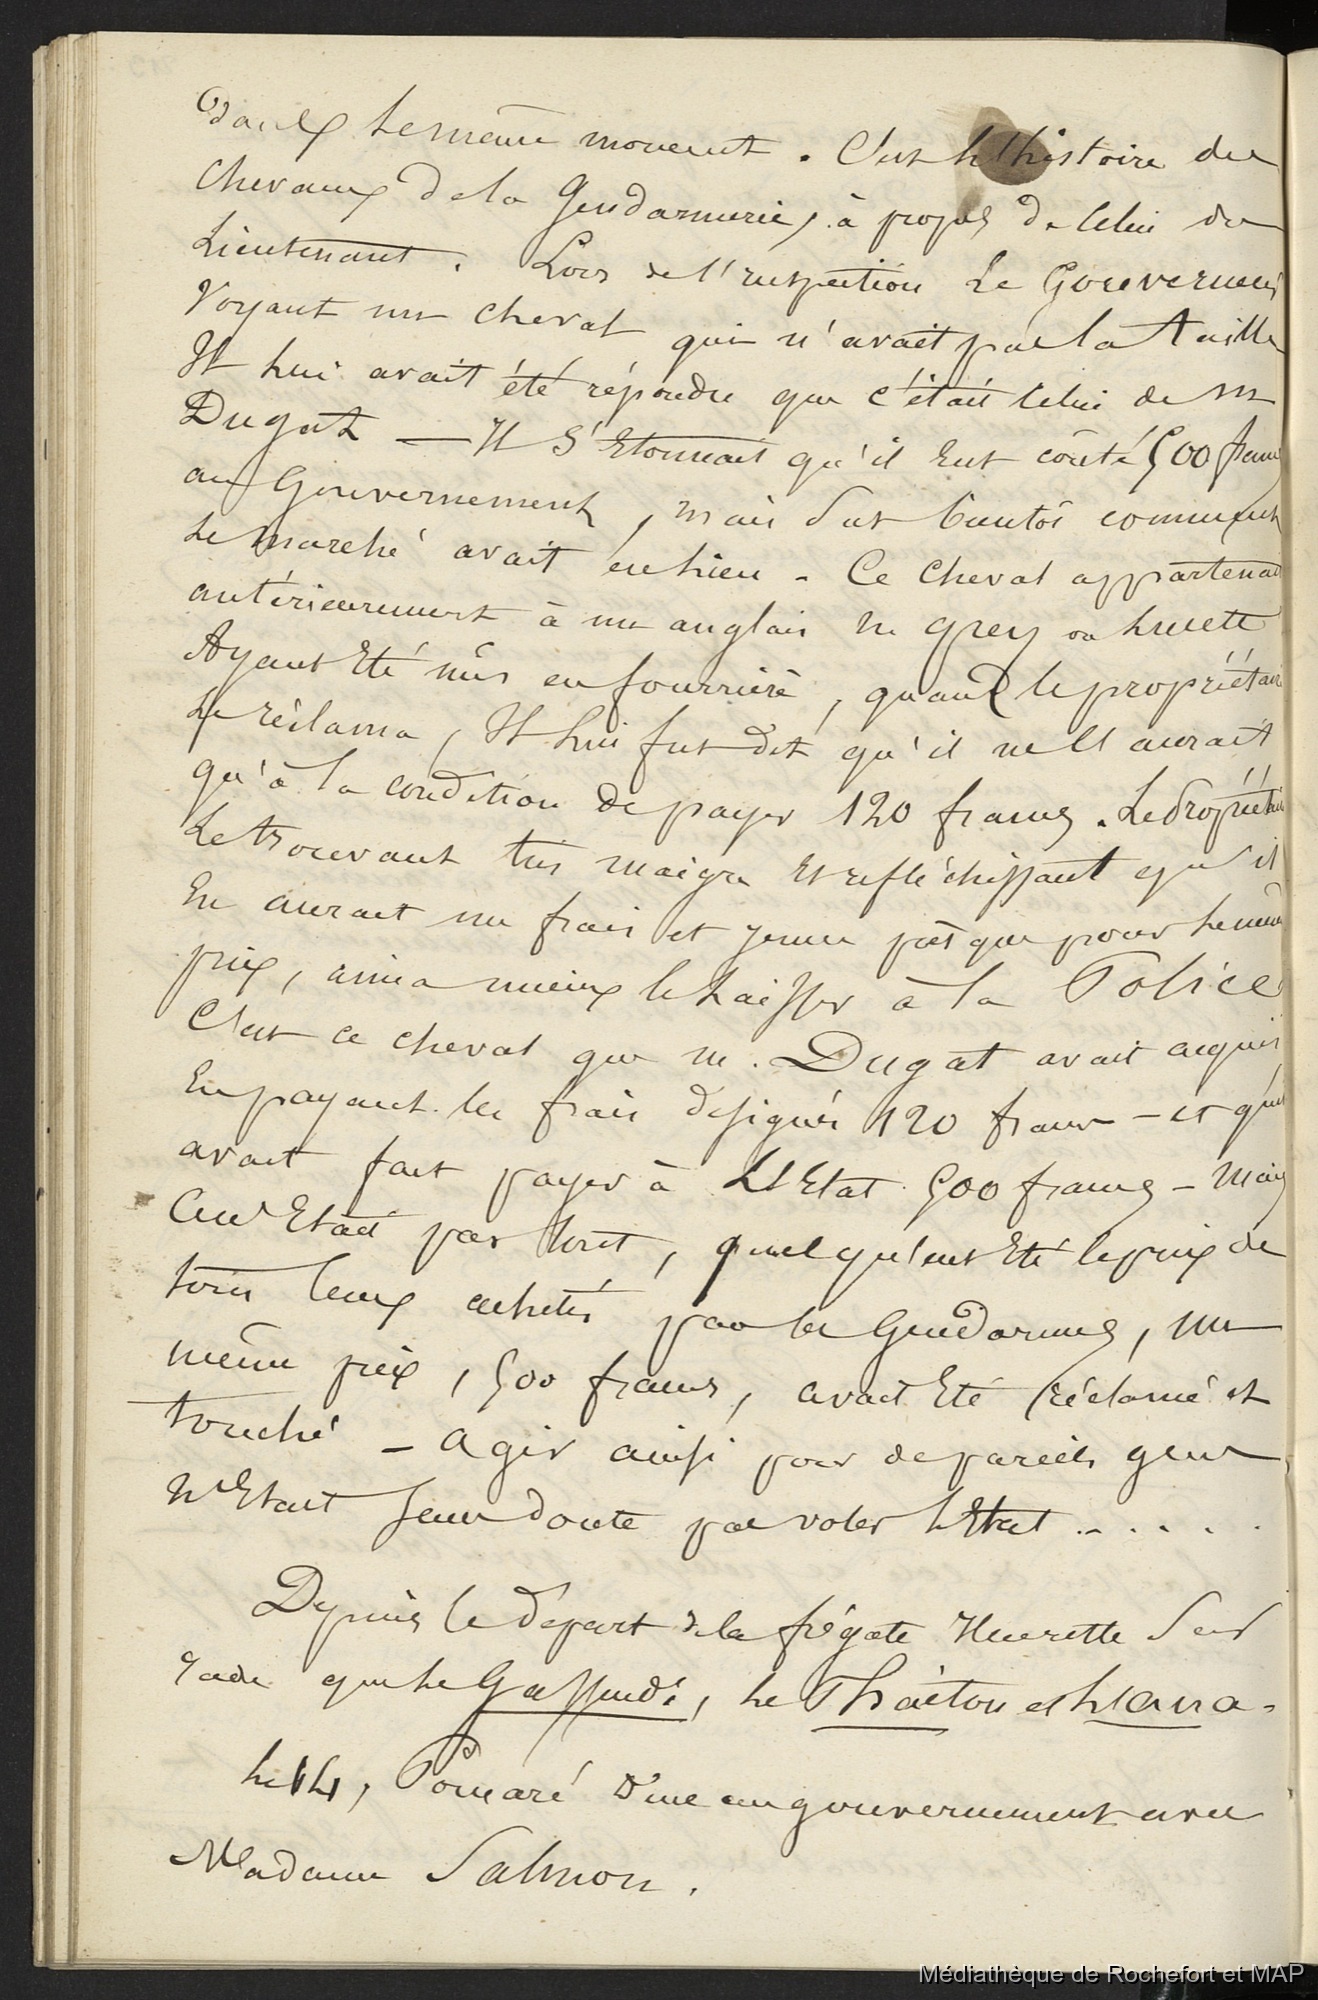 dans le même moment. C'est l'histoire des
Chevaux de la Gendarmerie, à propos de celui du
Lieutenant. Lors de l'inspection Le Gouverneur
Voyant un cheval qui n'avait pas la taille
Il lui avait été répondu que c'était celui de M
Dugat — Il S'Etonnait qu'il Eut coûté 500 francs
au Gouvernement, mais Sut bientôt comment
le marché avait eu lieu - Ce cheval appartenait
antérieurement à un anglais M Grey ou hwett
Ayant Eté mis en fourrière, quand le propriétaire
le réclama, Il lui fut dit qu'il ne l'aurait
qu'à la condition de payer 120 francs. Le Propriétaire
Le trouvant très maigre Et réfléchissant qu'il
En aurait un frais et jeune presque pour le même
prix, aima mieux le laisser à la Police
C'est ce cheval que M. Dugat avait acquis
En payant les frais désignés 120 francs - et qu'il
avait fait payer à L'Etat 500 francs - Mais
Ce n'Etait pas tout, quel qu'eut Eté le prix de
tous ceux achetés par les Gendarmes, un
même prix, 500 francs, avait Eté réclamé et
touché - Agir ainsi pour de pareils gens
N'Etait sans doute pas voler l'Etat . . . . .
Depuis le départ de la frégate Heurette Sur
rade que le Gassendi, le Phaëton et l'Ana-
le 14, Pomaré dine au gouvernement avec
Madame Salmon.
Médiathèque de Rochefort et MAP